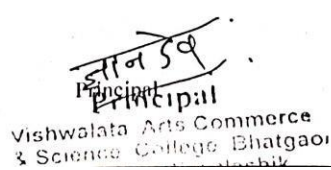 ज्ञानदेव
Principal
Principal
Vishwalata Arts Commerce
& Science College Bhatgaon